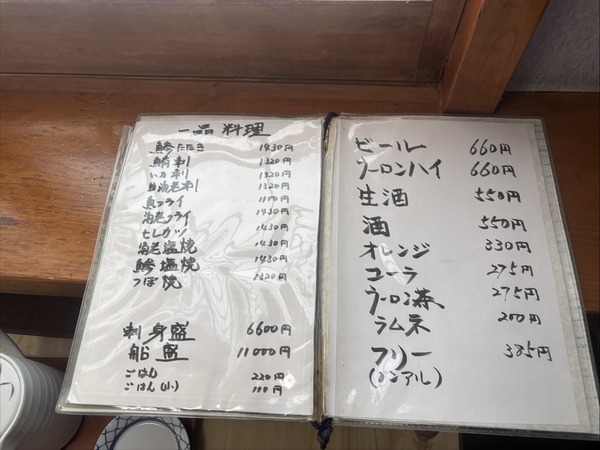 一品料理
鯵たたき 1430円
鮪刺 1320円
いか刺 1320円
甘海老刺 1320円
魚フライ
海老フライ 1430円
ヒレカツ 1430円
海老塩焼 1430円
鯵塩焼 1430円
つぼ焼 1320円
刺身盛 6600円
船盛 11000円
ごはん 220円
ごはん(小) 110円
ビール 660円
ウーロンハイ 660円
生酒 550円
酒 550円
オレンジ 330円
コーラ 275円
ウーロン茶 275円
ラムネ 200円
フリー 385円
(ノンアル)